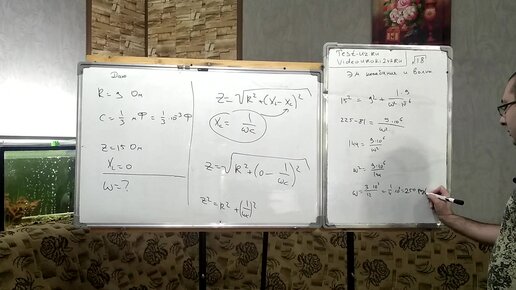 Дано
R = 9 Ом
C = 1/3 мФ = 1/3 · 10⁻³ Ф
Z = 15 Ом
X_L = 0
ω = ?
Z = √(R² + (X_L - X_C)²)
X_C = 1/(ωC)
Z = √(R² + (0 - 1/(ωC))²)
Z² = R² + (1/(ωC))²
Test-uz.ru
Videouroki24.ru
√18
ЭМ колебания и волны
15² = 9² + 1·9/(ω²·10⁻⁶)
225-81 = 9·10⁶/ω²
144 = 9·10⁶/ω²
ω² = 9·10⁶/144
ω = 3·10³/12 = 1/4 · 10³ = 250